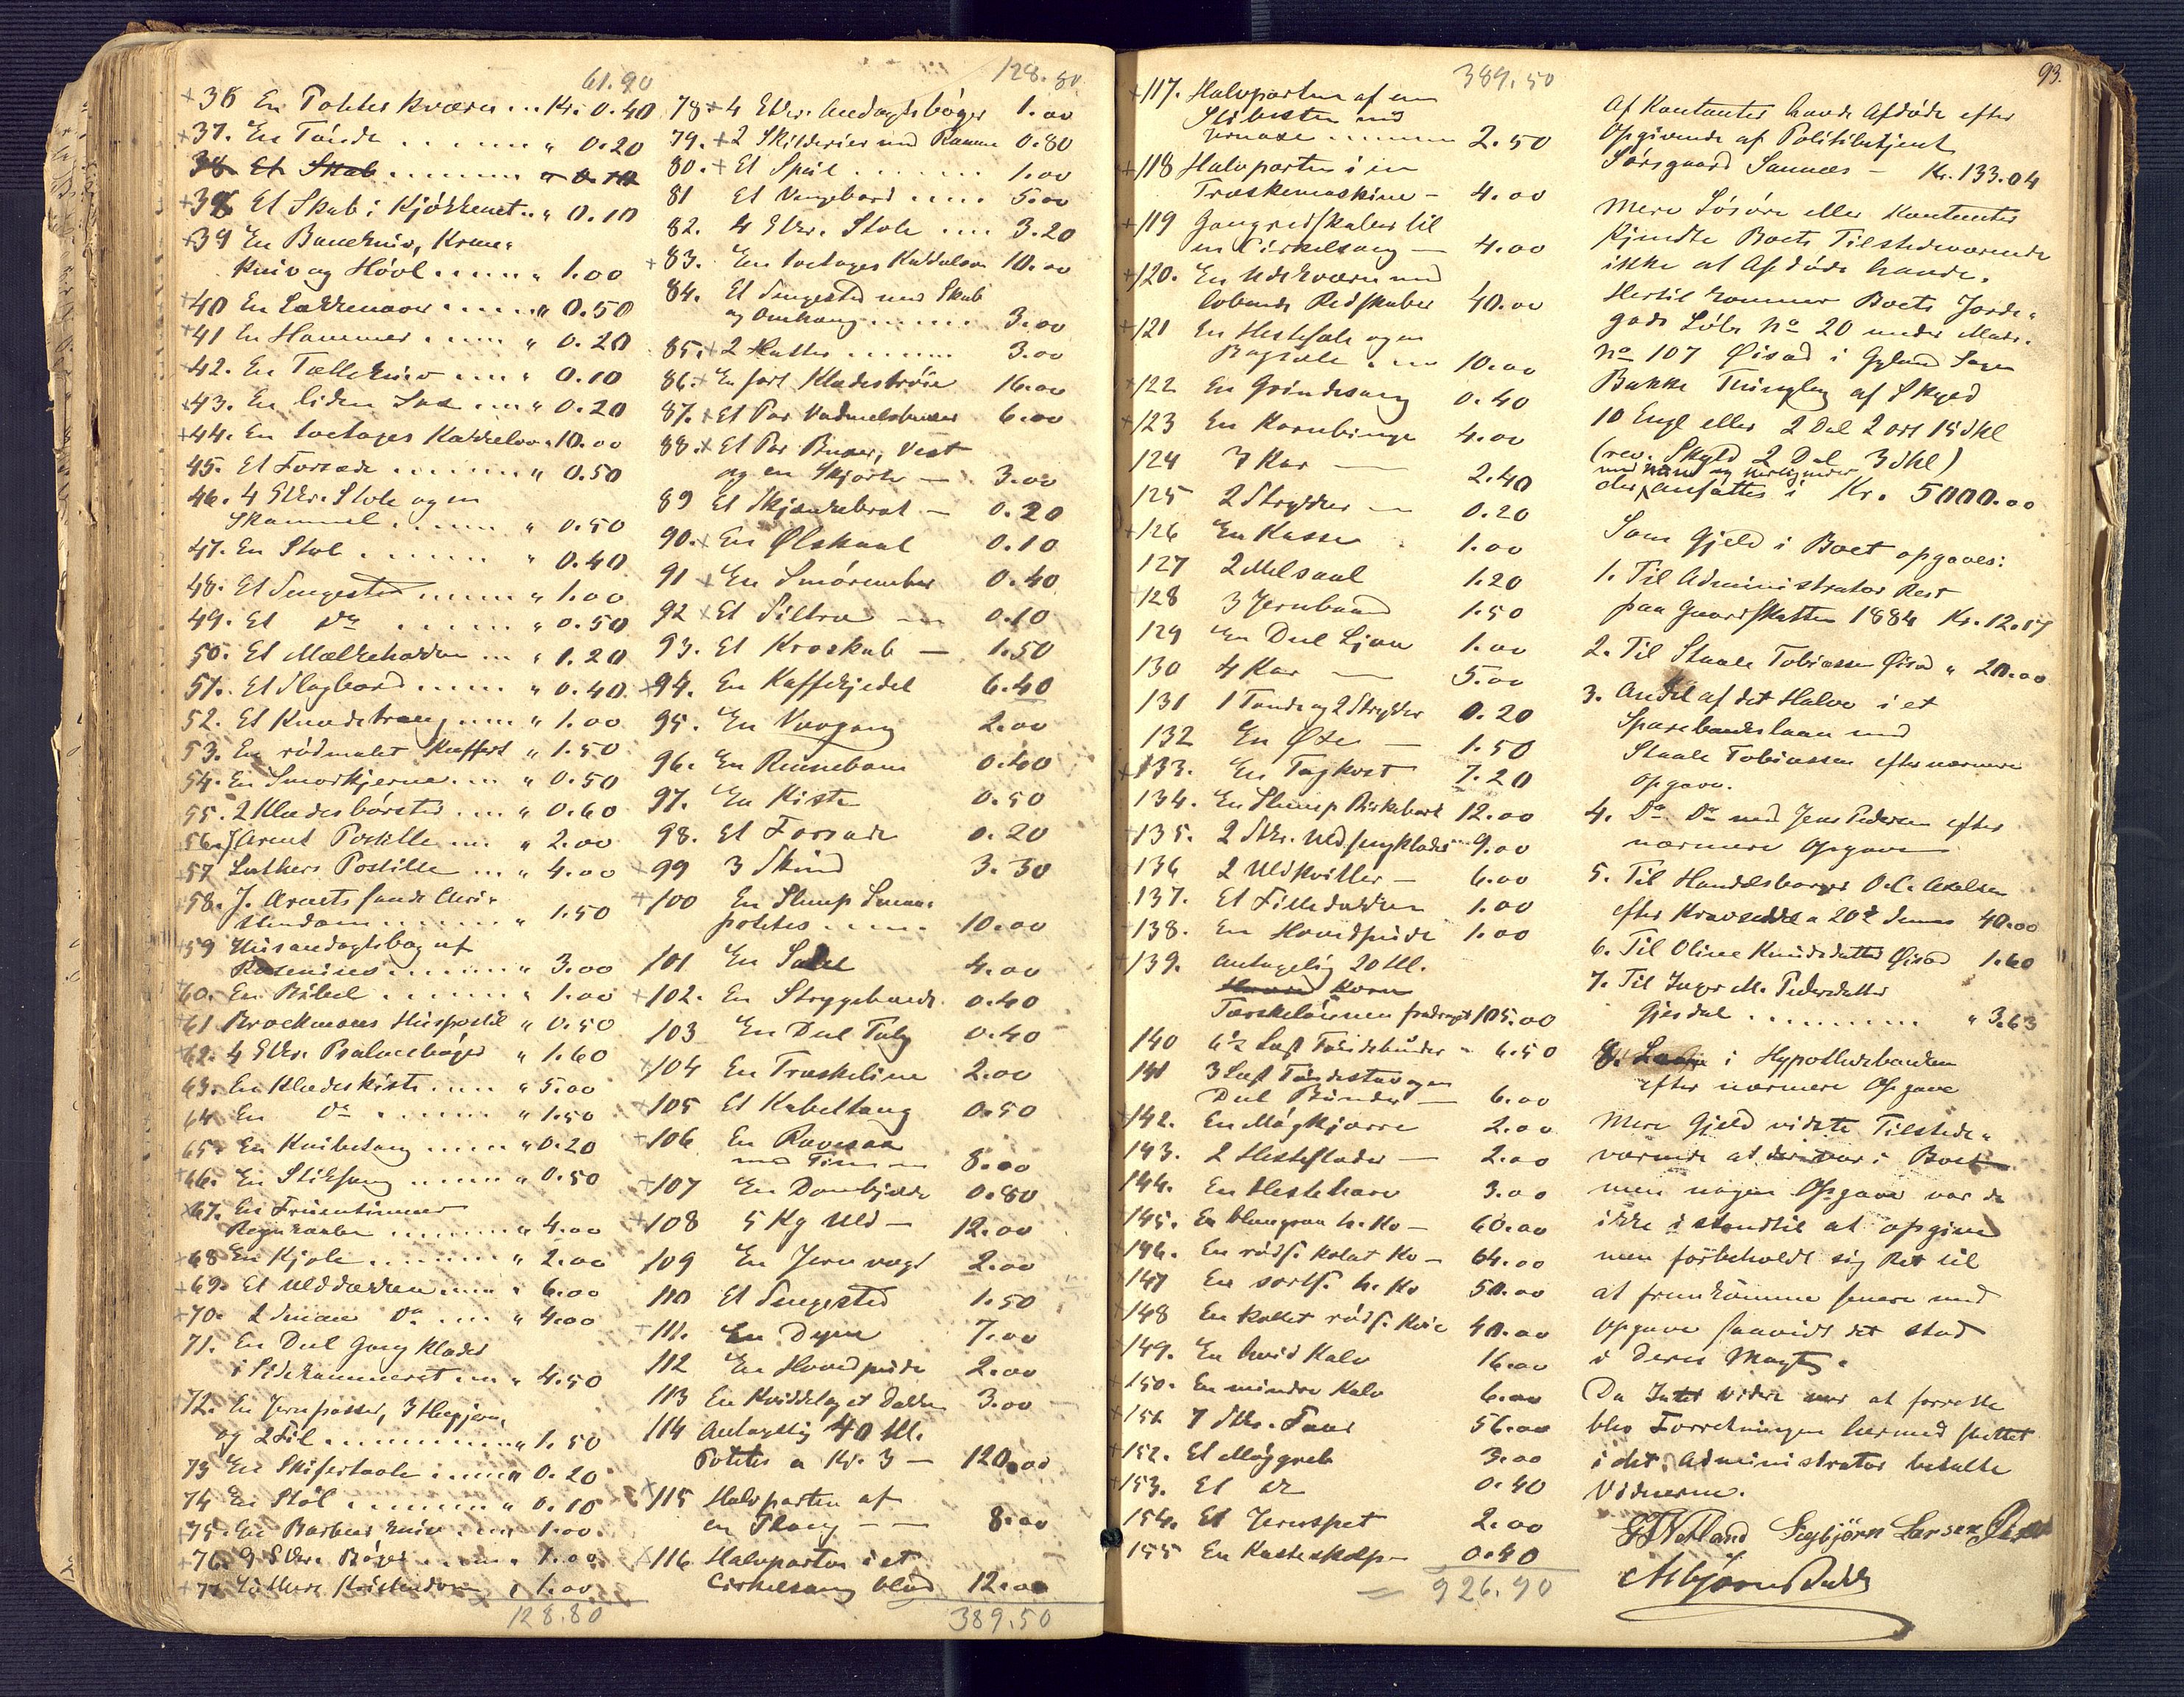 61.90
+36 En Potteskværn ... Kr. 0.40
+37. En Tønde ....... " 0.20
38 Et Skab ....... " 0.10
+38 Et Skab i Kjøkkenet .. " 0.10
+39 En Baneknív, Krum-
kniv og Høvl ..... " 1.00
+40 En Lokkenaver ..... " 0.50
+41 En Hammer ..... " 0.20
+42. En Tællekniv .... " 0.10
+43. En liden Sax ... " 0.20
+44. En toetages Kakkelovn . 10.00
45. Et Forsæde ....... " 0.50
46. 4 Stkr. Stole og en
Skammel ...... " 0.50
47. En Stol ....... " 0.40
48. Et Sengested ..... " 1.00
49. Et Do ...... " 0.50
50. Et Melkeholder ... " 1.20
51. Et Slagbord ..... " 0.40
52. Et Knadetraug .... " 1.00
53. En rødmalet Kuffert " 1.50
54. En Smørkjerne ... " 0.50
55. 2 Klædesbørster ... " 0.60
56. J Arent Postille ... " 2.00
57 Luthers Postille ... " 4.00
58. J. Arents sande Chri-
stendom ....... " 1.50
+59 Husandagtsbog af
Rosenius ...... " 3.00
60. En Bibel ....... " 1.00
+61 Brockmans Huspostil " 0.50
+62. 4 Stkr. Psalmebøger " 1.60
63. En Klædeskiste .... " 5.00
64 En Do ...... " 1.50
65. En Knibetang ..... " 0.20
+66. En Stiksaug ..... " 0.50
x67. En Fruentimmer
Regnkaabe ....... " 4.00
+68 En Kjole ........ " 2.00
+69. Et Ulddækken .... " 6.00
+70. 2 smaae Do .... " 4.00
71. En Deel Gangklæder
i Sidekammeret ... " 4.50
+72. En Jernpasser, 3 Huggjern
og 2 Fil ......... " 1.50
73 En Skifertavle ..... " 0.20
74 En Støl ....... " 0.10
+75. En Barberkniv .... " 1.00
+76. 9 Stkr. Bøger ..... " 1.00
+77. Luthers Kristendom " 1.00
128.80
128.80
78+ 4 Stkr. Andagtsbøger 1.00
79. +2 Skilderier med Ramme 0.80
80. + Et Speil ........ 1.00
81 Et Vengebord .... 5.00
82. 4 Stkr. Stole .... 3.20
+83. En toetages Kakkelovn 10.00
84. Et Sengested med Skab
og Omhæng ...... 3.00
85. + 2 Hatter ....... 3.00
86. + En sort Klædestrøie 16.00
87. + Et Par Vadmelsbuxer 6.00
88. x Et Par Buxer, Vest
og en Skjorte — 3.00
89 Et Skjænkebræt — 0.20
90. x En Ølskaal 0.10
91 + En Smørember 0.40
92 x Et Siltræ — 0.10
93. Et Kroskab — 1.50
x94. En Kaffekjedel 6.40
95. En Vævgang 2.00
96. En Rennebom 0.40
97. En Kiste 0.50
98. Et Forsæde 0.20
+99 3 Skind 3.30
+100 En Slump Smaae
poteter ..... 10.00
101 En Sadel 4.00
+102. En Strygebænk 0.40
103 En Deel Talg 0.40
x104 En Træskeline 2.00
+105 Et Kabeltaug 0.50
+106 En Ravesax
med Tin — 8.00
+107 En Dombjelde 0.80
+108 5 Kg Uld — 12.00
109 En Jernvægt 2.00
110 Et Sengested 1.50
+111. En Dyne 7.00
112 En Hovedpude 2.00
113 En Kviddel og et Dækken 3.00
114 Antagelig 40 Hl.
Poteter a Kr. 3 — 120.00
x115 Halvparten af
en Plaug — — 8.00
x116 Halvparten i et
Cirkelsaug blad 12.00
389.50
389.50
+117. Halvparten af en
Slibesten med
jernaxe ....... 2.50
+118 Halvparten i en
Træskemaskine — 4.00
+119 Gangredskaber til
en Cirkelsaug — 4.00
+120. En Udekværn med
løbende Redskaber 40.00
+121 En Hestesele og en
Bagsele .... 10.00
+122 En Grindesaug 0.40
+123 En Kornbinge 4.00
124 7 Kar — 2.40
125 2 Strykker — 0.20
+126 En Kasse . 1.00
127 2 Melsaal 1.20
128 3 Jernbaand 1.50
129 En Deel Ljaa 1.00
130 4 Kar — 5.00
131 1 Tønde og 2 Strykker 0.20
132 En Øxe — 1.50
+133. En Tagkost 7.20
134. En Slump Birkebark 12.00
+135. 2 Stkr. Uldsengklæder 9.00
+136 2 Uldkvitler — 6.00
137. Et Filledækken 1.00
+138. En Hovedpude 1.00
+139. Antagelig 20 Hl.
Havre Korn
Tærskelønnen fradraget 105.00
140 6½ Læst Tøndebunder — 6.50
141 3 Læst Tøndestav og en
Deel Bunder — 6.00
+142. En Møgkjærre 2.00
+143. 2 Hesteslæder — 2.00
+144. En Hesteharv 3.00
+145. En blaagraa h. Ko — 60.00
+146. En røds. kolat Ko — 64.00
+147 En sorts. h. Ko 50.00
+148 En kollet røds. Kvie 40.00
+149. En hvid Kalv 16.00
+150. En mindre Kalv 6.00
+151 7 Stkr. Faar 56.00
+152. Et Møggreb 3.00
+153. Et do 0.40
154. Et Jernspet 2.00
155 En Kasteskolp — 0.40
= 926.90
93.
Af Kontanter havde Afdøde efter
Opgivende af Politibetjent
Sørsgaard Sannes — Kr. 133.04
Mere Løsøre eller Kontanter
kjendte Boets Tilstedeværende
ikke at Afdøde havde.
Hertil kommer Boets Jorde-
gods Løbe No 20 under Matr.
No 107 Øisæd i Gyland Sogn
Bakke Thinglag af Skyld
10 Engl eller 2 Dal 2 ort 15 skl
(rev. Skyld 2 Dal 3 skl)
med huse og herligheder
der ansættes i Kr. 5000.00
Som Gjeld i Boet opgaves:
1. Til Administrator Rest
paa Gaardskatten 1884 Kr. 12.17
2. Til Staale Tobiassen Øisæd " 20.00
3. Andel af det Halve i et
Sparebankslaan med
Staale Tobiassen efter nærmere
opgave.
4. Do Do med Jens Pedersen efter
nærmere Opgave
5. Til Handelsborger O. C. Axelsen
efter Kravseddel a 20de dennes 40.00
6. Til Oline Knudsdatter Øisæd 1.60
7. Til Inger M. Pedersdatter
Gjesdal ......... " 3.63
8. Laan i Hypothekbanken
efter nærmere Opgave
Mere Gjeld vidste Tilstede-
værende at der var i Boet
men nogen Opgave var de
ikke i stand til at opgive
men forbeholdt sig Ret til
at fremkomme senere med
Opgave saavidt det stod
i deres Magt.
Da Intet videre var at forrette
blev Forretningen hermed sluttet
idet Administrator betalte
Vidnerne.
Segbjörn Larsen